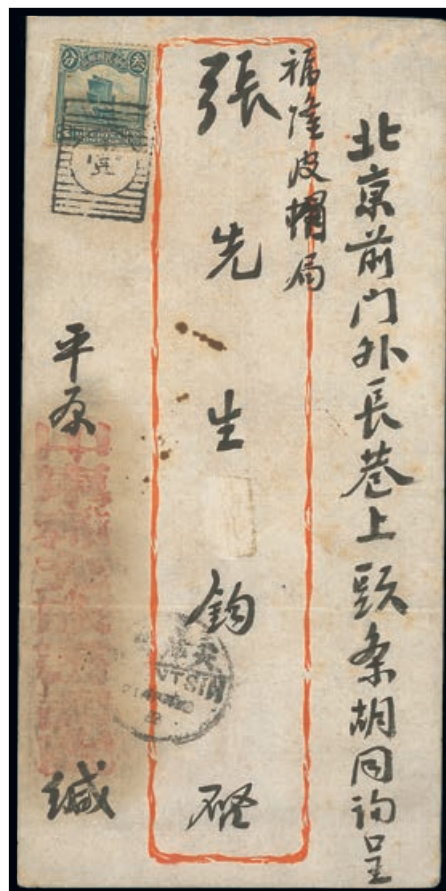 北京前门外長巷上頭条胡同詢呈
福隆皮帽局
張先生鈞啓
平原
緘
分
TSIN